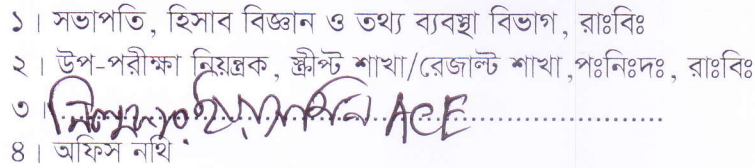 ১। সভাপতি, হিসাব বিজ্ঞান ও তথ্য ব্যবস্থা বিভাগ, রাঃবিঃ
২। উপ-পরীক্ষা নিয়ন্ত্রক, স্ক্রীপ্ট শাখা/রেজাল্ট শাখা,পঃনিঃদঃ, রাঃবিঃ
৩। ACE
৪। অফিস নথি